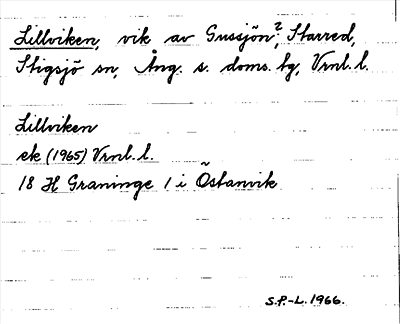 Lillviken, vik av Gussjön?, Starred,
Stigsjö sn, Ång. s. doms. tg, Vrnl. l.
Lillviken
ek (1965) Vrnl. l.
18 H Graninge 1 i Östanvik
S.P.-L. 1966.